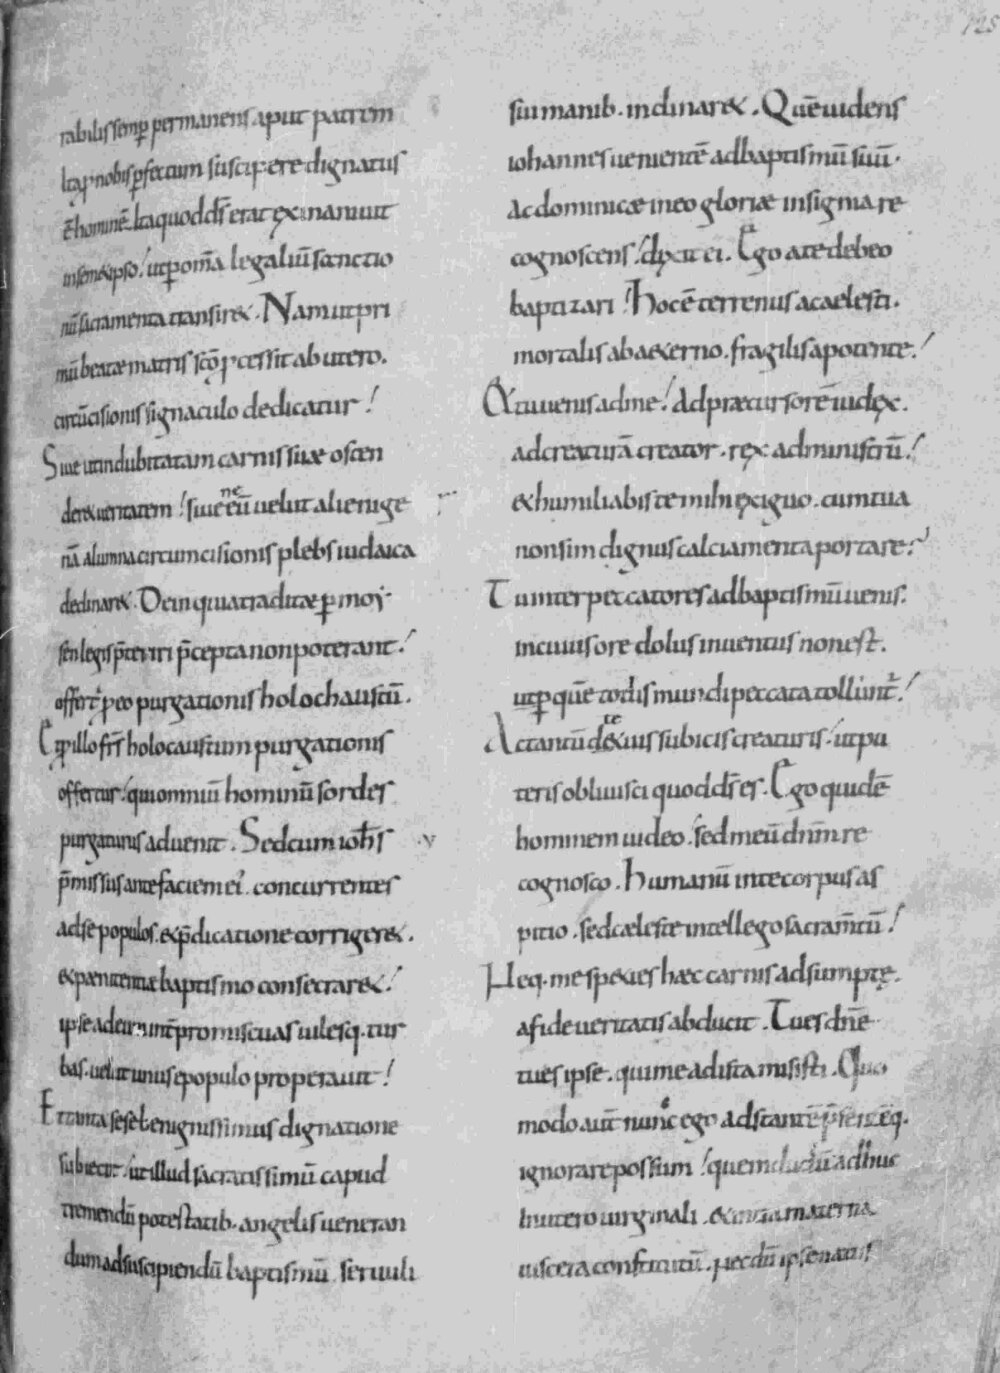 125
rabilis semp permanens aput patrem
Itaq nobis pfectum suscipere dignatus
ē hominē. Ita quod dſ erat exinaniuit
in semetipso! ut p omā legaliū sanctio
nū sacramenta transiret. Nam ut pri
mū beatae matris scō pcessit ab utero.
circūcisionis signaculo dedicatur!
Siue ut indubitatam carnis suae osten
deret ueritatem! siue ne eū uelut alienige
nā alumna circumcisionis plebs iudaica
declinaret. Dein quia traditae p moy
sen legis pteriri pcepta non poterant!
offert p eo purgationis holochaustū.
Et p illo frſ holocaustum purgationis
offertur! qui omniū hominū sordes
purgaturus aduenit. Sed cum iohſ
pmissus ante faciem ei. concurrentes
ad se populos. et pdicatione corrigeret.
et paenitentiae baptismo consecraret!
ipse ad eum int promiscuas uilesq. tur
bas. uelut unus e populo properauit!
Et tanta sese benignissimus dignatione
subiecit! ut illud sacratissimū capud
tremendū potestatib. angelis ueneran
dum ad suscipiendū baptismū seruuli
sui manib. inclinaret. Quē uidens
iohannes uenientē ad baptismū suū.
Ac dominicae in eo gloriae insignia re
cognoscens! dixit ei. Ego a te debeo
baptizari! Hoc ē terrenus a caelesti.
mortalis ab aeterno. fragilis a potente!
Et tu uenis ad me! Ad praecursorē iudex.
ad creaturā creator. rex ad ministrū!
et humiliabis te mihi exiguo. cum tua
non sim dignus calciamenta portare?
Tu inter peccatores ad baptismū uenis.
in cuius ore dolus inuentus non est.
ut p quē totius mundi peccata tollunt!
Ac tantū te de exuis subicis creaturis! ut pu
teris obliuisci quod dſ es. Ego quidē
hominem uideo. sed meū dnm re
cognosco. Humanū in te corpus as
pitio. sed caeleste intellego sacramtū!
Neq. me species haec carnis adsumptę.
a fide ueritatis abducit. Tu es dnē
tu es ipse. qui me ad ista misisti. Quo
modo aut nunc ego adstantē psentēq.
ignorare possum! quem dudū adhuc
In utero uirginali. et intra materna
uiscera constitutū. necdū ipse natus